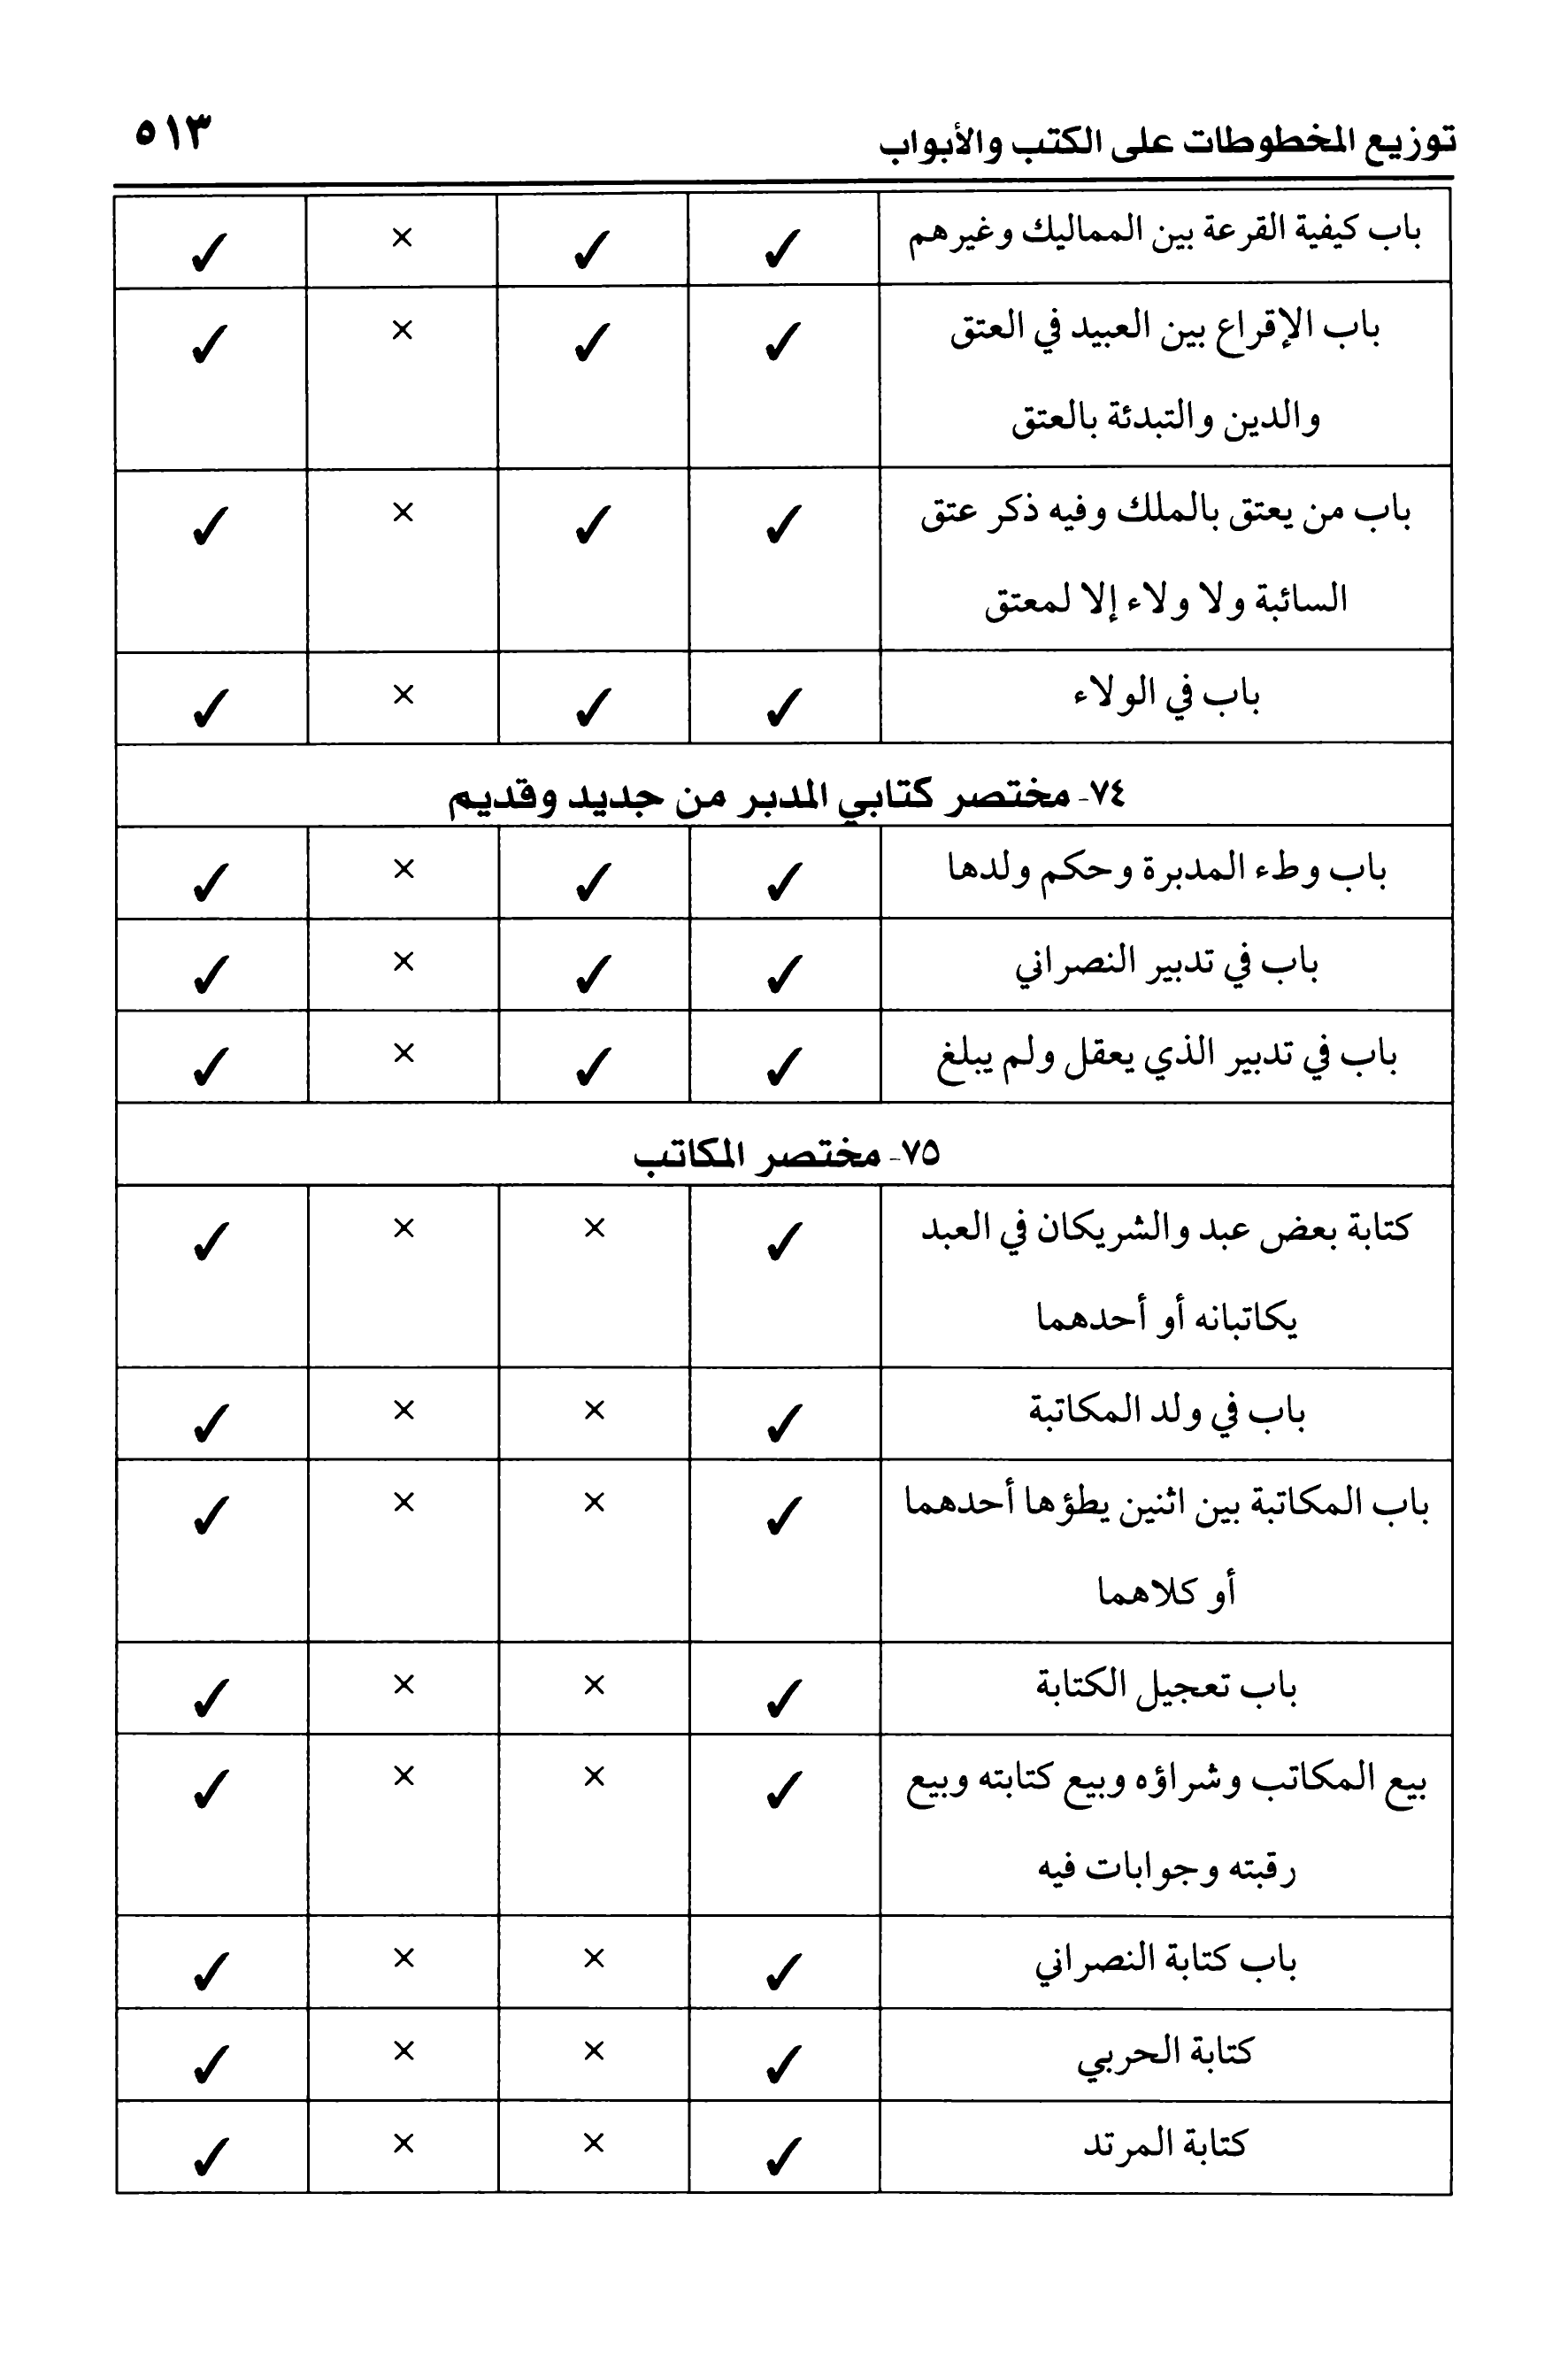 توزيع المخطوطات على الكتب والأبواب ٥١٣
باب كيفية القرعة بين المماليك وغيرهم ✓ ✓ × ✓
باب الإقراع بين العبيد في العتق ✓ ✓ × ✓
والدين والتبدئة بالعتق
باب من يعتق بالملك وفيه ذكر عتق ✓ ✓ × ✓
السائبة ولا ولاء إلا لمعتق
باب في الولاء ✓ ✓ × ✓
٧٤- مختصر كتابي المدبر من جديد وقديم
باب وطء المدبرة وحكم ولدها ✓ ✓ × ✓
باب في تدبير النصراني ✓ ✓ × ✓
باب في تدبير الذي يعقل ولم يبلغ ✓ ✓ × ✓
٧٥- مختصر المكاتب
كتابة بعض عبد والشريكان في العبد ✓ × × ✓
يكاتبانه أو أحدهما
باب في ولد المكاتبة ✓ × × ✓
باب المكاتبة بين اثنين يطؤها أحدهما ✓ × × ✓
أو كلاهما
باب تعجيل الكتابة ✓ × × ✓
بيع المكاتب وشراؤه وبيع كتابته وبيع ✓ × × ✓
رقبته وجوابات فيه
باب كتابة النصراني ✓ × × ✓
كتابة الحربي ✓ × × ✓
كتابة المرتد ✓ × × ✓